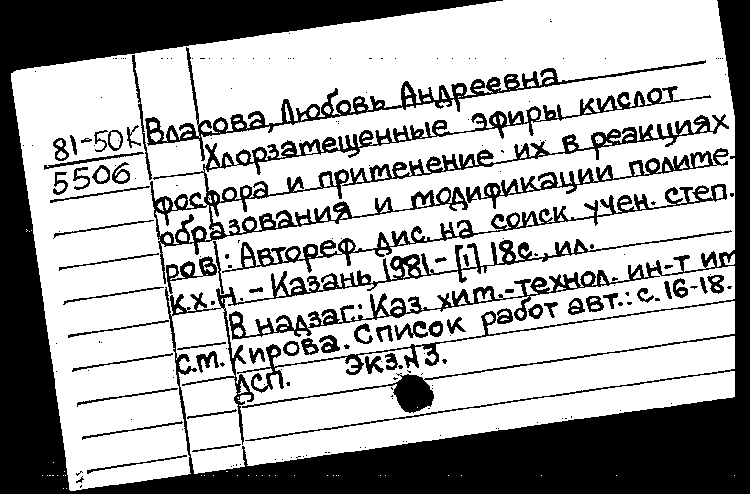 81-50К Власова, Любовь Андреевна.
5506 Хлорзатещенные эфиры кислот
фосфора и притенение их в реакциях
образования и модификации полите-
ров: Автореф. дис. на соиск. учен. степ.
к.х.н. - Казань, 1981. - [1], 18с., ил.
В надзаг.: Каз. хим.-технол. ин-т им
с.т. Кирова. Список работ авт.: с. 16-18.
ДСП. Экз.№3.